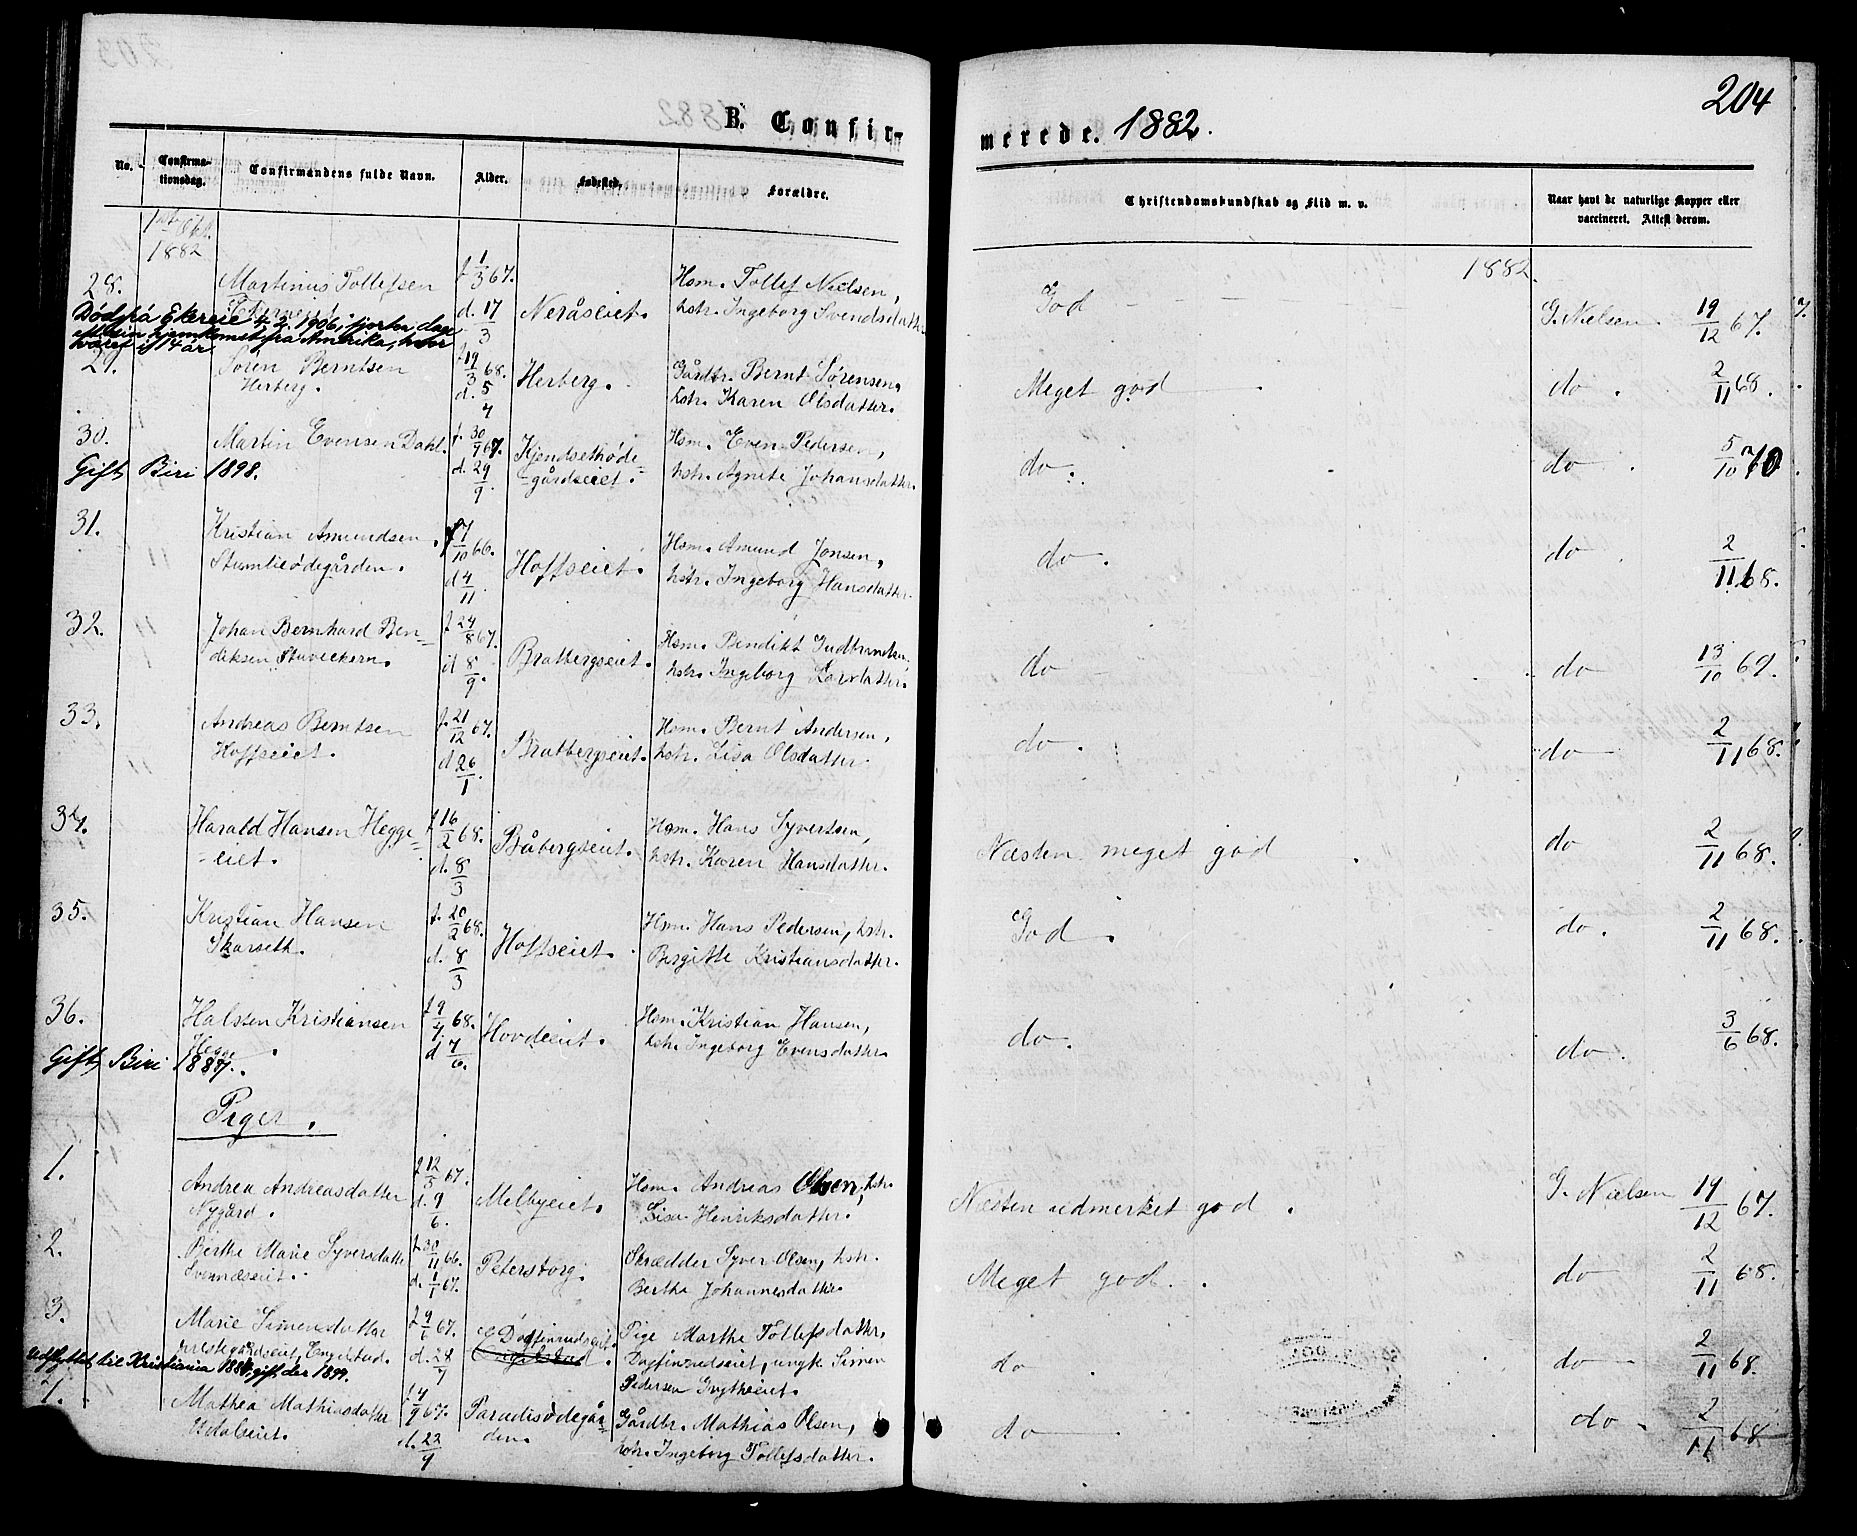 204
B. Confirmerede. 1882.
No. Confirmationsdag. Confirmandens fulde Navn. Alder. Fødested. Forældre. Christendomskundskab og Flid m. v. Naar havt de naturlige Kopper eller vaccineret. Attest derom.
1882 1882.
28. Martinus Tollefsen f. 1/3 67. d. 17/3 Neråseiet. Hsm. Tollef Nielsen, God G. Nielsen 19/12 67.
hstr. Ingeborg Svendsdatter
Død på Ekereie 4.2.1906, fjorten dage
hjemkomst fra Amerika, hvor
været i 14 år
29. Søren Berntsen f. 19/3 68. d. 5/4 Herberg. Gårdbr. Bernt Sørensen, Meget god do. 2/11 68.
Herberg. hstr. Karen Olsdatter.
30. Martin Evensen Dahl. f. 30/7 67. d. 29/9. Kjendsethøde- Hsm. Even Pedersen, do. do 5/10 70
gårdseiet. hstr. Agnete Johansdatter.
Gift Biri 1898.
31. Kristian Amundsen f. 17/10 66. d 4/11 Hoffseiet. Hsm. Amund Jonsen, do. do 2/11 68.
Stumlieødegården. hstr. Ingeborg Hansdatter.
32. Johan Bernhard Ben- f 24/8 67. d 8/9. Bratbergseiet. Hsm. Bendikt Gudbrandsen, do do 13/10 69.
diksen Stuveekern. hstr. Ingeborg Larsdatter.
33. Andreas Berntsen f. 21/12 67. d 26/1. Bratbergseiet. Hsm. Bernt Andersen, do. do 2/11 68.
Hoffseiet. hstr. Lisa Olsdatter.
34. Harald Hansen Hegge- f 16/2 68. d. 8/3 Båbergseiet. Hsm. Hans Syvertsen, Næsten meget god do 2/11 68.
eiet. hstr. Karen Hansdatter.
35. Kristian Hansen f. 20/2 68. d. 8/3 Hoffseiet. Hsm. Hans Pedersen, hstr. God. do. 2/11 68.
Skarseth. Bergitte Kristiansdatter.
36. Halsten Kristiansen f 9/4 68. d 7/6. Hovdeeiet. Hsm. Kristian Hansen, do. do. 3/6 68.
Hegge. hstr. Ingeborg Evensdatter
Gift Biri 1887.
Piger.
1. Andrea Andreasdatter f 12/5 67. d. 9/6. Melbyeiet. Hsm. Andreas Olsen, hstr. Næsten udmerket god. G. Nielsen 19/12 67.
Nygård. Lisa Henriksdatter.
2. Berthe Marie Syversdatter f. 30/11 66. d. 1/1 67. Petersborg. Skrædder Syver Olsen, hstr. Meget god. do 2/11 68.
Svennæseiet. Bertha Johannesdatter
3. Marie Simensdatter f 9/6 67. d. 28/7 Dagfinrudseiet. Pige Marthe Tollefsdatter, do do 2/11 68.
Engelstad. Dagfinrudseiet, ungk. Simen
Pedersen Grytheeiet.
Udflyttet til Kristiania 1884, gift der 1899.
4. Mathea Mathiasdatter f 4/9 67. d. 23/9 Paradisødegår- Gårdbr. Mathias Olsen, do do 2/11 68
den. hstr. Ingeborg Tollefsdatter.